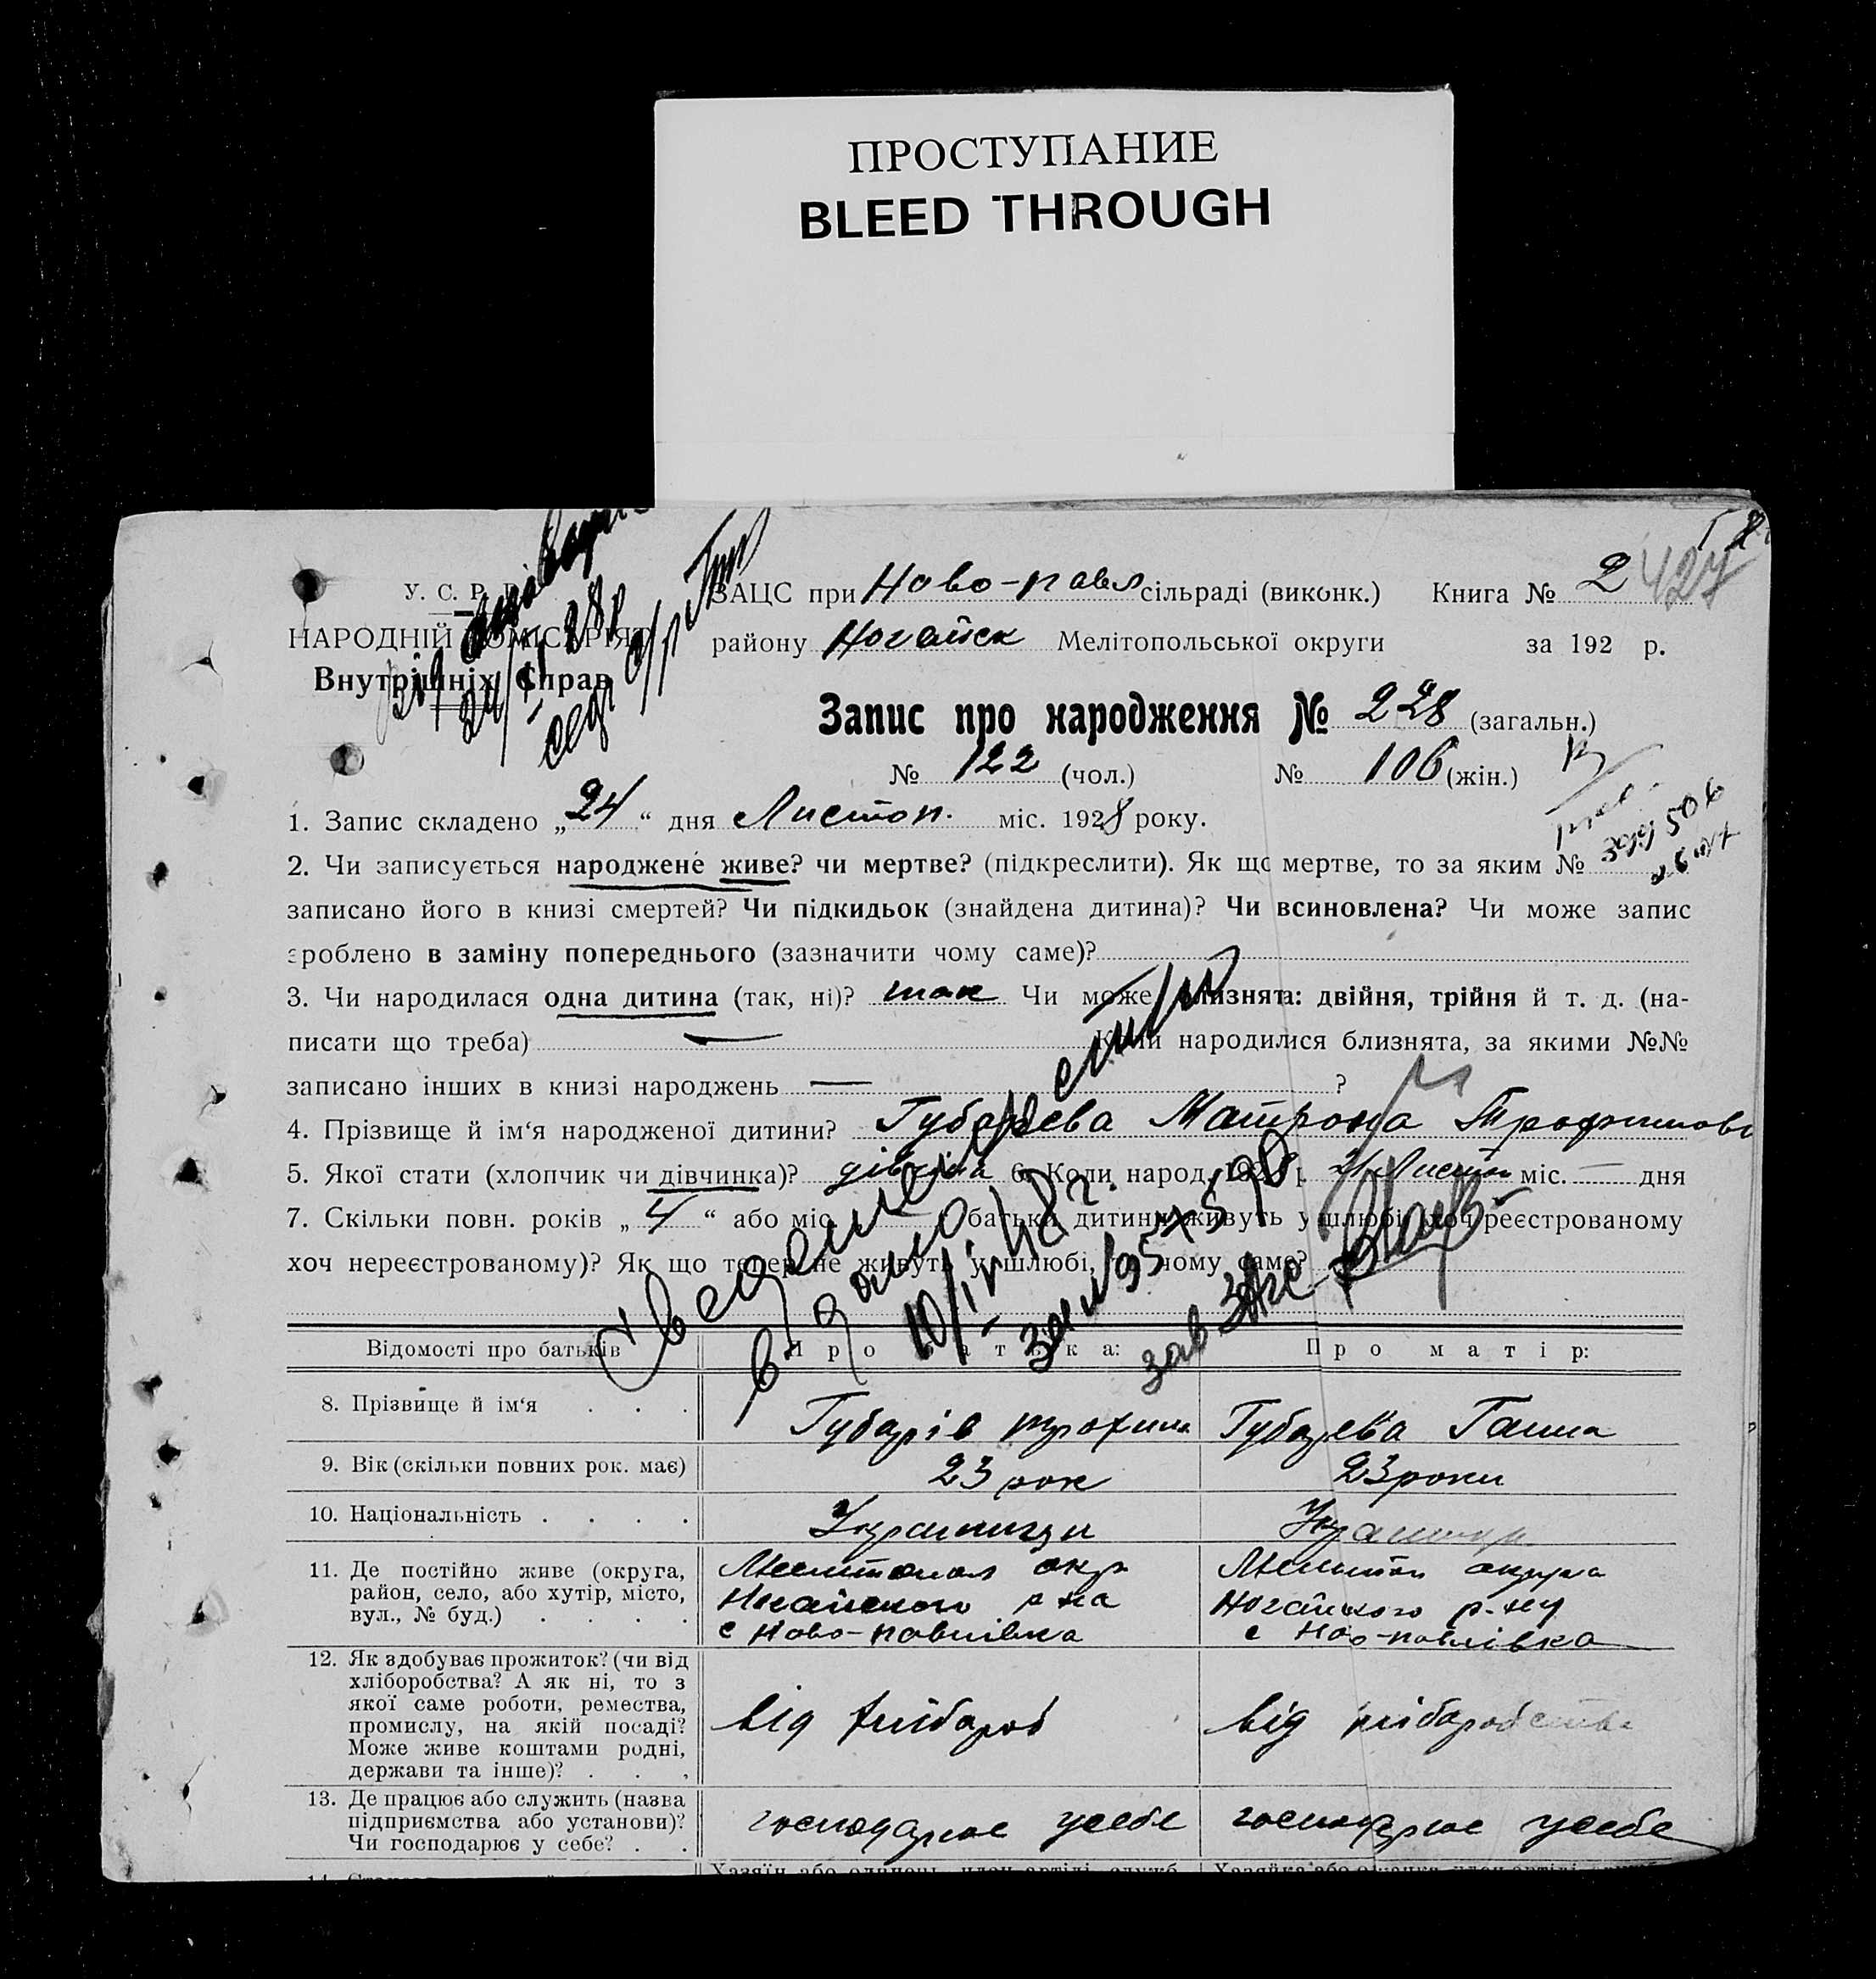 ПРОСТУПАНИЕ
BLEED THROUGH
У. С. Р. Р.
НАРОДНІЙ КОМІСАРІЯТ
Внутрішніх Справ
ЗАЦС при Ново-павл сільраді (виконк.) Книга № 2 427
району Ногайск Мелітопольської округи за 192 р.
Запис про народження № 228 (загальн.)
№ 122 (чол.) № 106 (жін.)
1. Запис складено „24“ дня Листоп. міс. 1928 року.
2. Чи записується народжене живе? чи мертве? (підкреслити). Як що мертве, то за яким №
записано його в книзі смертей? Чи підкидьок (знайдена дитина)? Чи всиновлена? Чи може запис
зроблено в заміну попереднього (зазначити чому саме)?
3. Чи народилася одна дитина (так, ні)? так Чи може близнята: двійня, трійня й т. д. (на-
писати що треба) — Коли народилися близнята, за якими №№
записано інших в книзі народжень — ?
4. Прізвище й ім‘я народженої дитини? Губарева Матрона Трофимов
5. Якої стати (хлопчик чи дівчинка)? дівчина 6. Коли народ. 1928 р. 21 Листоп міс. — дня
7. Скільки повн. років „4“ або міс. батьки дитини живуть у шлюбі (хоч реєстрованому
хоч нереєстрованому)? Як що тепер не живуть у шлюбі, то чому саме?
Сведетел
выдано
10/IV 48 г.
зав ЗАГС
Відомості про батьків Про батька: Про матір:
8. Прізвище й ім‘я . . . Губарів трохим Губарева Ганна
9. Вік (скільки повних рок. має) 23 рок 23 роки
10. Національність . . . . Українци Україн
11. Де постійно живе (округа, Мелитопол окр Мелитоп округа
район, село, або хутір, місто, Ногайского р-на Ногайского р-ну
вул., № буд.) . . . . с Ново-павлівка с Ново-павлівка
12. Як здобуває прожиток? (чи від
хліборобства? А як ні, то з
якої саме роботи, ремества,
промислу, на якій посаді? від хлібороб від хліборобства
Може живе коштами родні,
держави та інше)? . . .
13. Де працює або служить (назва
підприємства або установи)? господарює усебе господарює усебе
Чи господарює у себе? . .